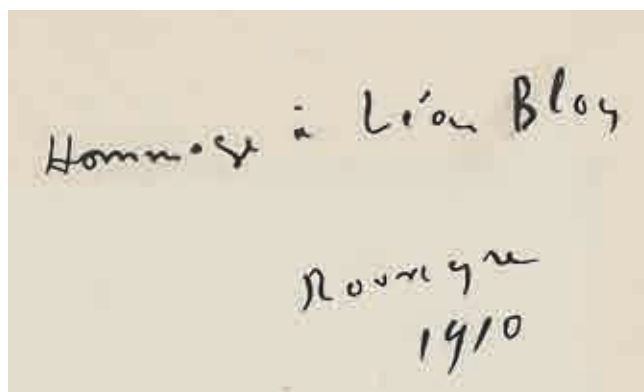 Hommage à Léon Bloy
Rouveyre
1910